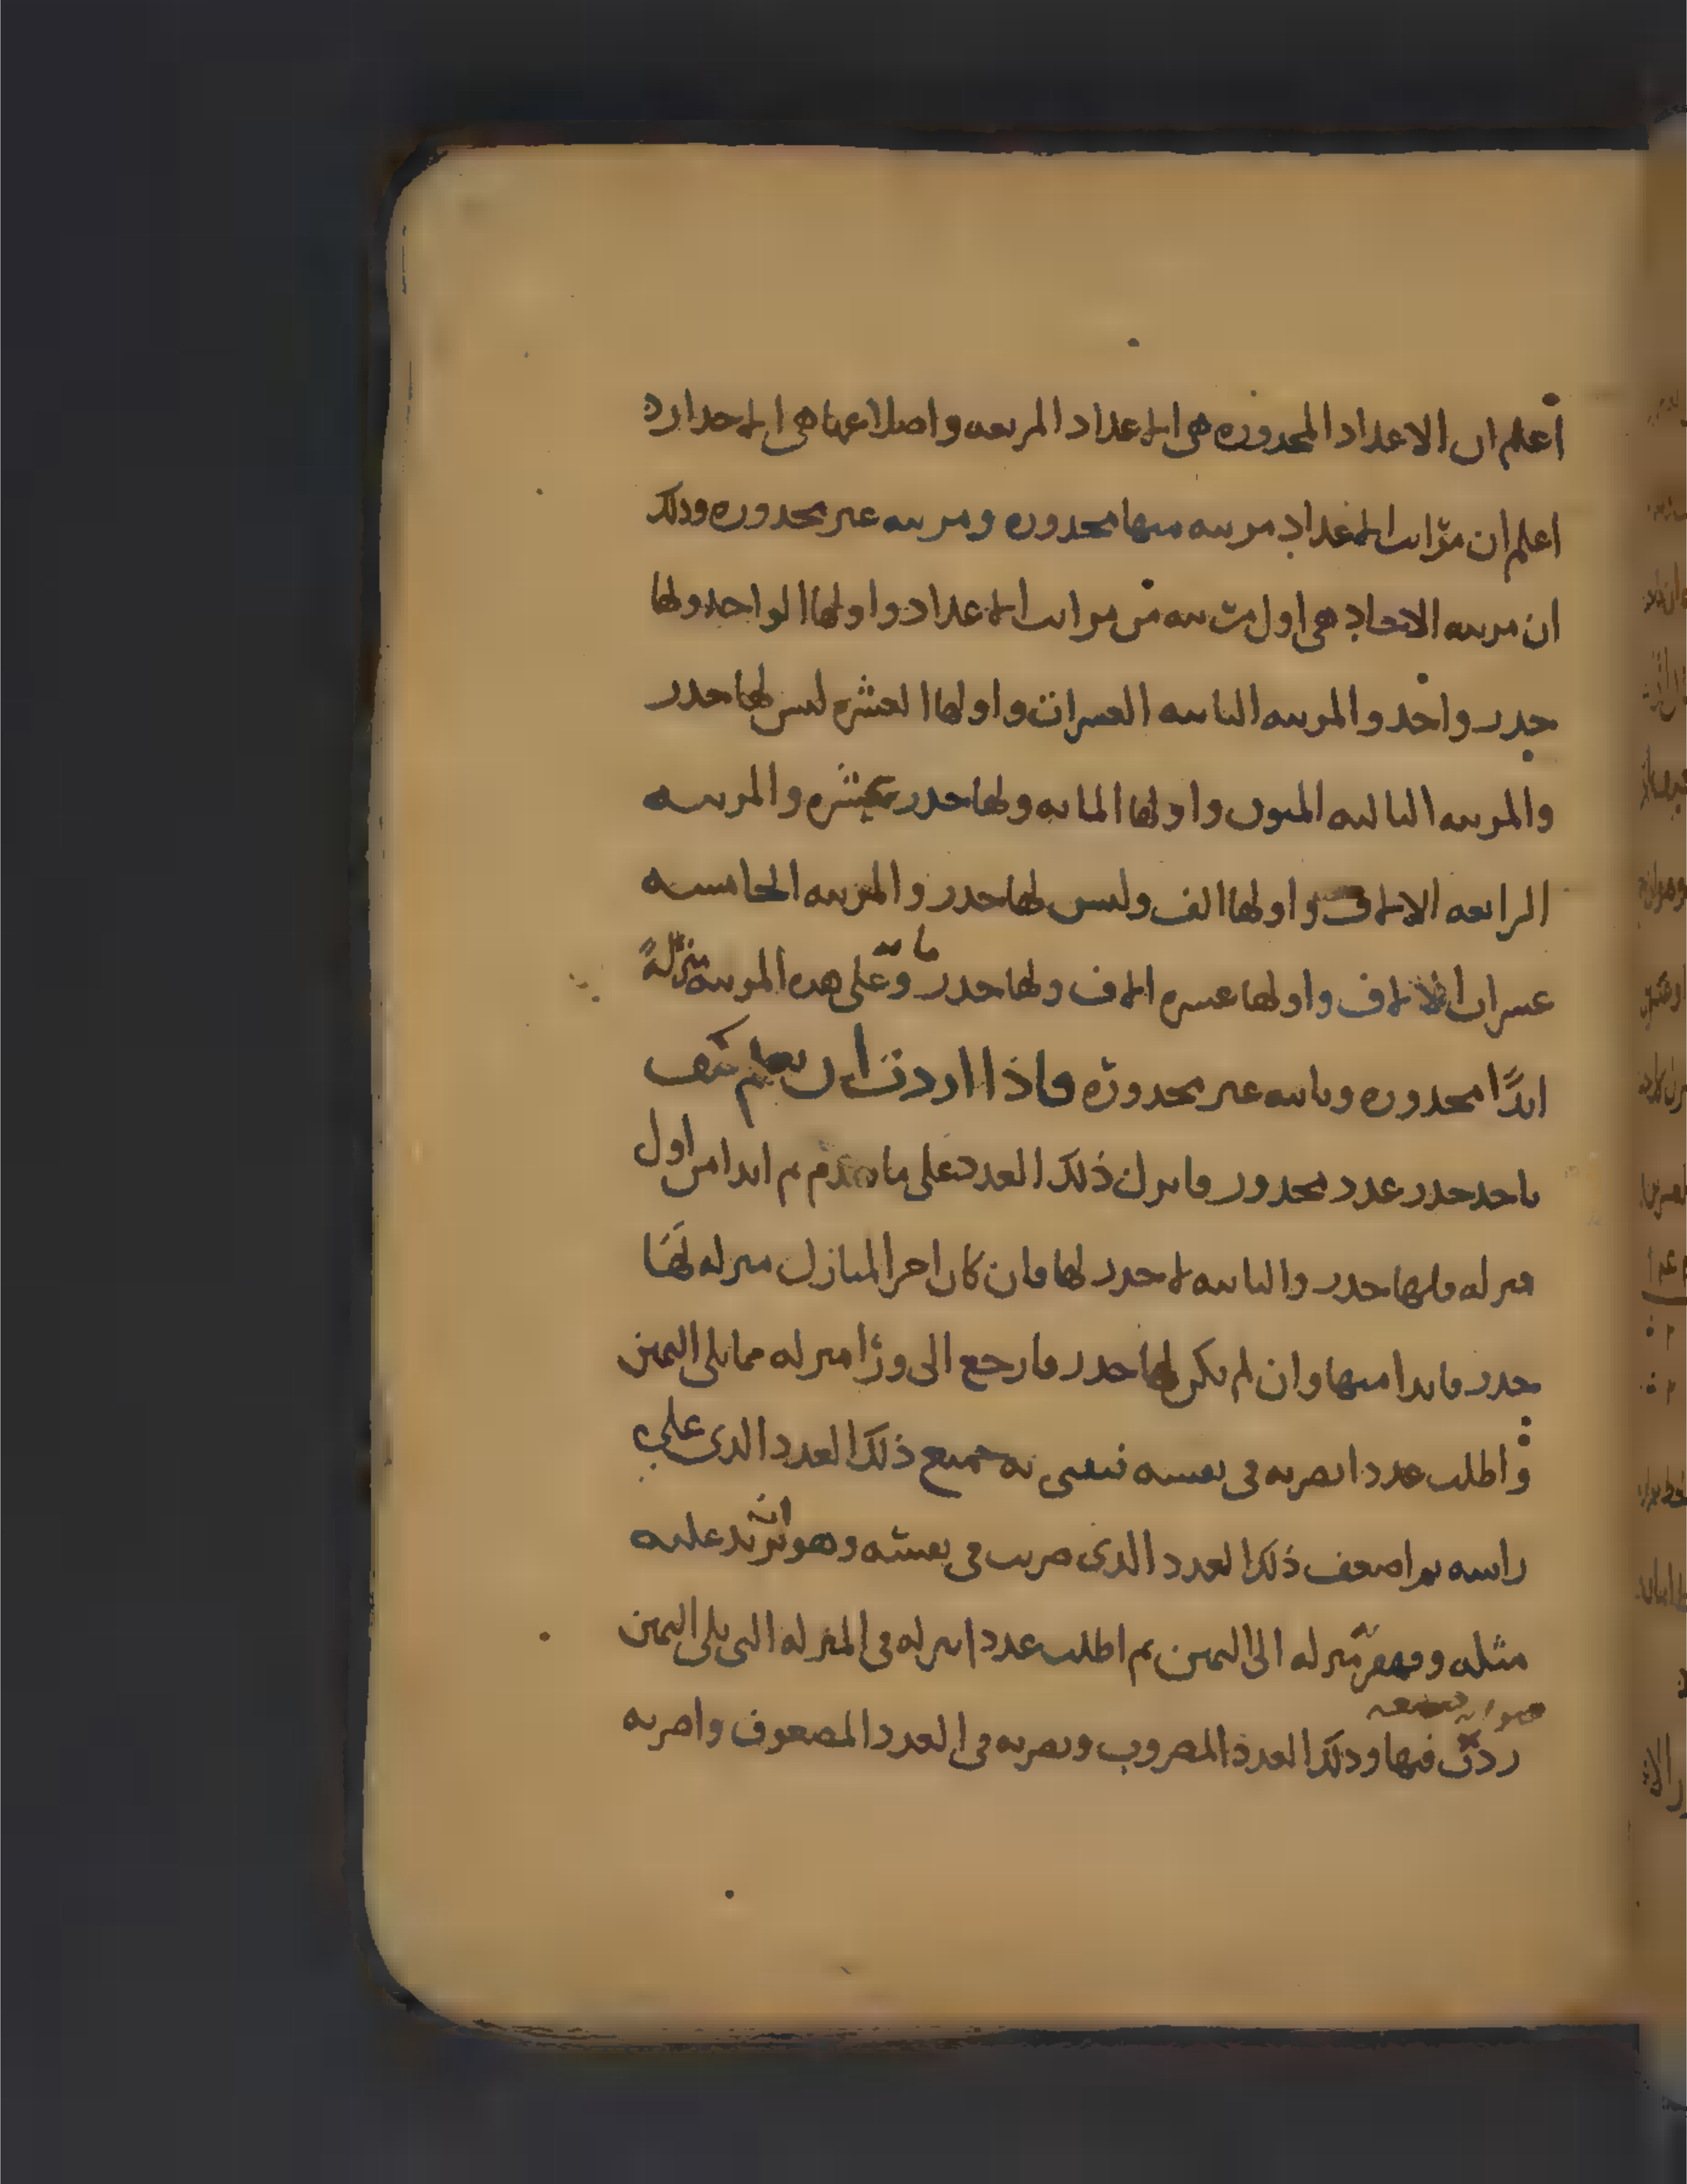 اعلم ان الاعداد المجدوره هى الاعداد المربعه واضلاعها هى الاجدار
اعلم ان مراتب الاعداد مرتبه منها مجدوره ومرتبه غير مجدوره وذلك
ان مرتبه الاحاد هى اول مرتبه من مراتب الاعداد واولها الواحد ولها
جدر واحد والمرتبه الثانيه العشرات واولها العشره ليس لها جدر
والمرتبه الثالثه الميون واولها المايه ولها جدر عشره والمرتبه
الرابعه الالاف واولها الف وليس لها جدر والمرتبه الخامسه
عشرات الالاف واولها عشره الاف ولها جدر مايه وعلى هذه المرتبة منزلةً
ابدًا مجدوره وثانيه غير مجدورة فاذا اردت ان تعلم كيف
تاخذ جدر عدد مجدور فانزل ذلك العدد على ما تقدم ثم ابدا من اول
منزله فلها جدر والثانيه لا جدر لها فان كان اخر المنازل منزله لها
جدر فابدا منها وان لم يكن لها جدر فارجع الى ورا منزله مما يلى اليمين
واطلب عددا تضربه فى نفسه تفنى به جميع ذلك العدد الذى على
راسه ثم اضعف ذلك العدد الذى ضربت فى نفسه وهو ان تزيد عليه
مثله وقهقر منزله الى اليمين ثم اطلب عددا تنزله فى المنزله التى يلى اليمين
ردت فيها وذلك العدد المضروب وتضربه فى العدد المضعوف واضربه